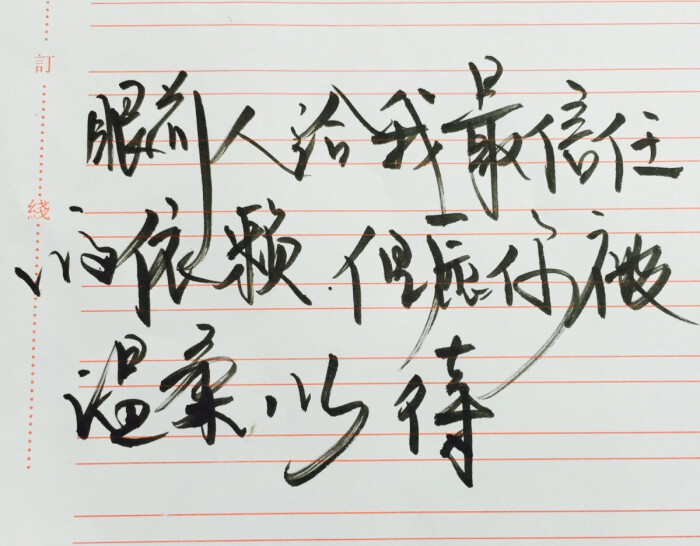 訂
綫
眼前人给我最信任
的依赖.但愿你被
温柔以待